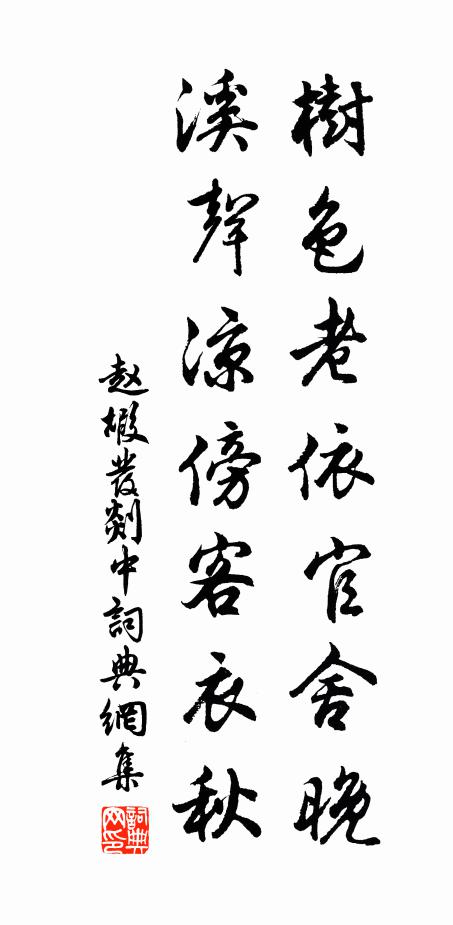 樹色老依官舍晚
溪聲涼傍客衣秋
趙嘏發剡中詞典網集
詞典
网印